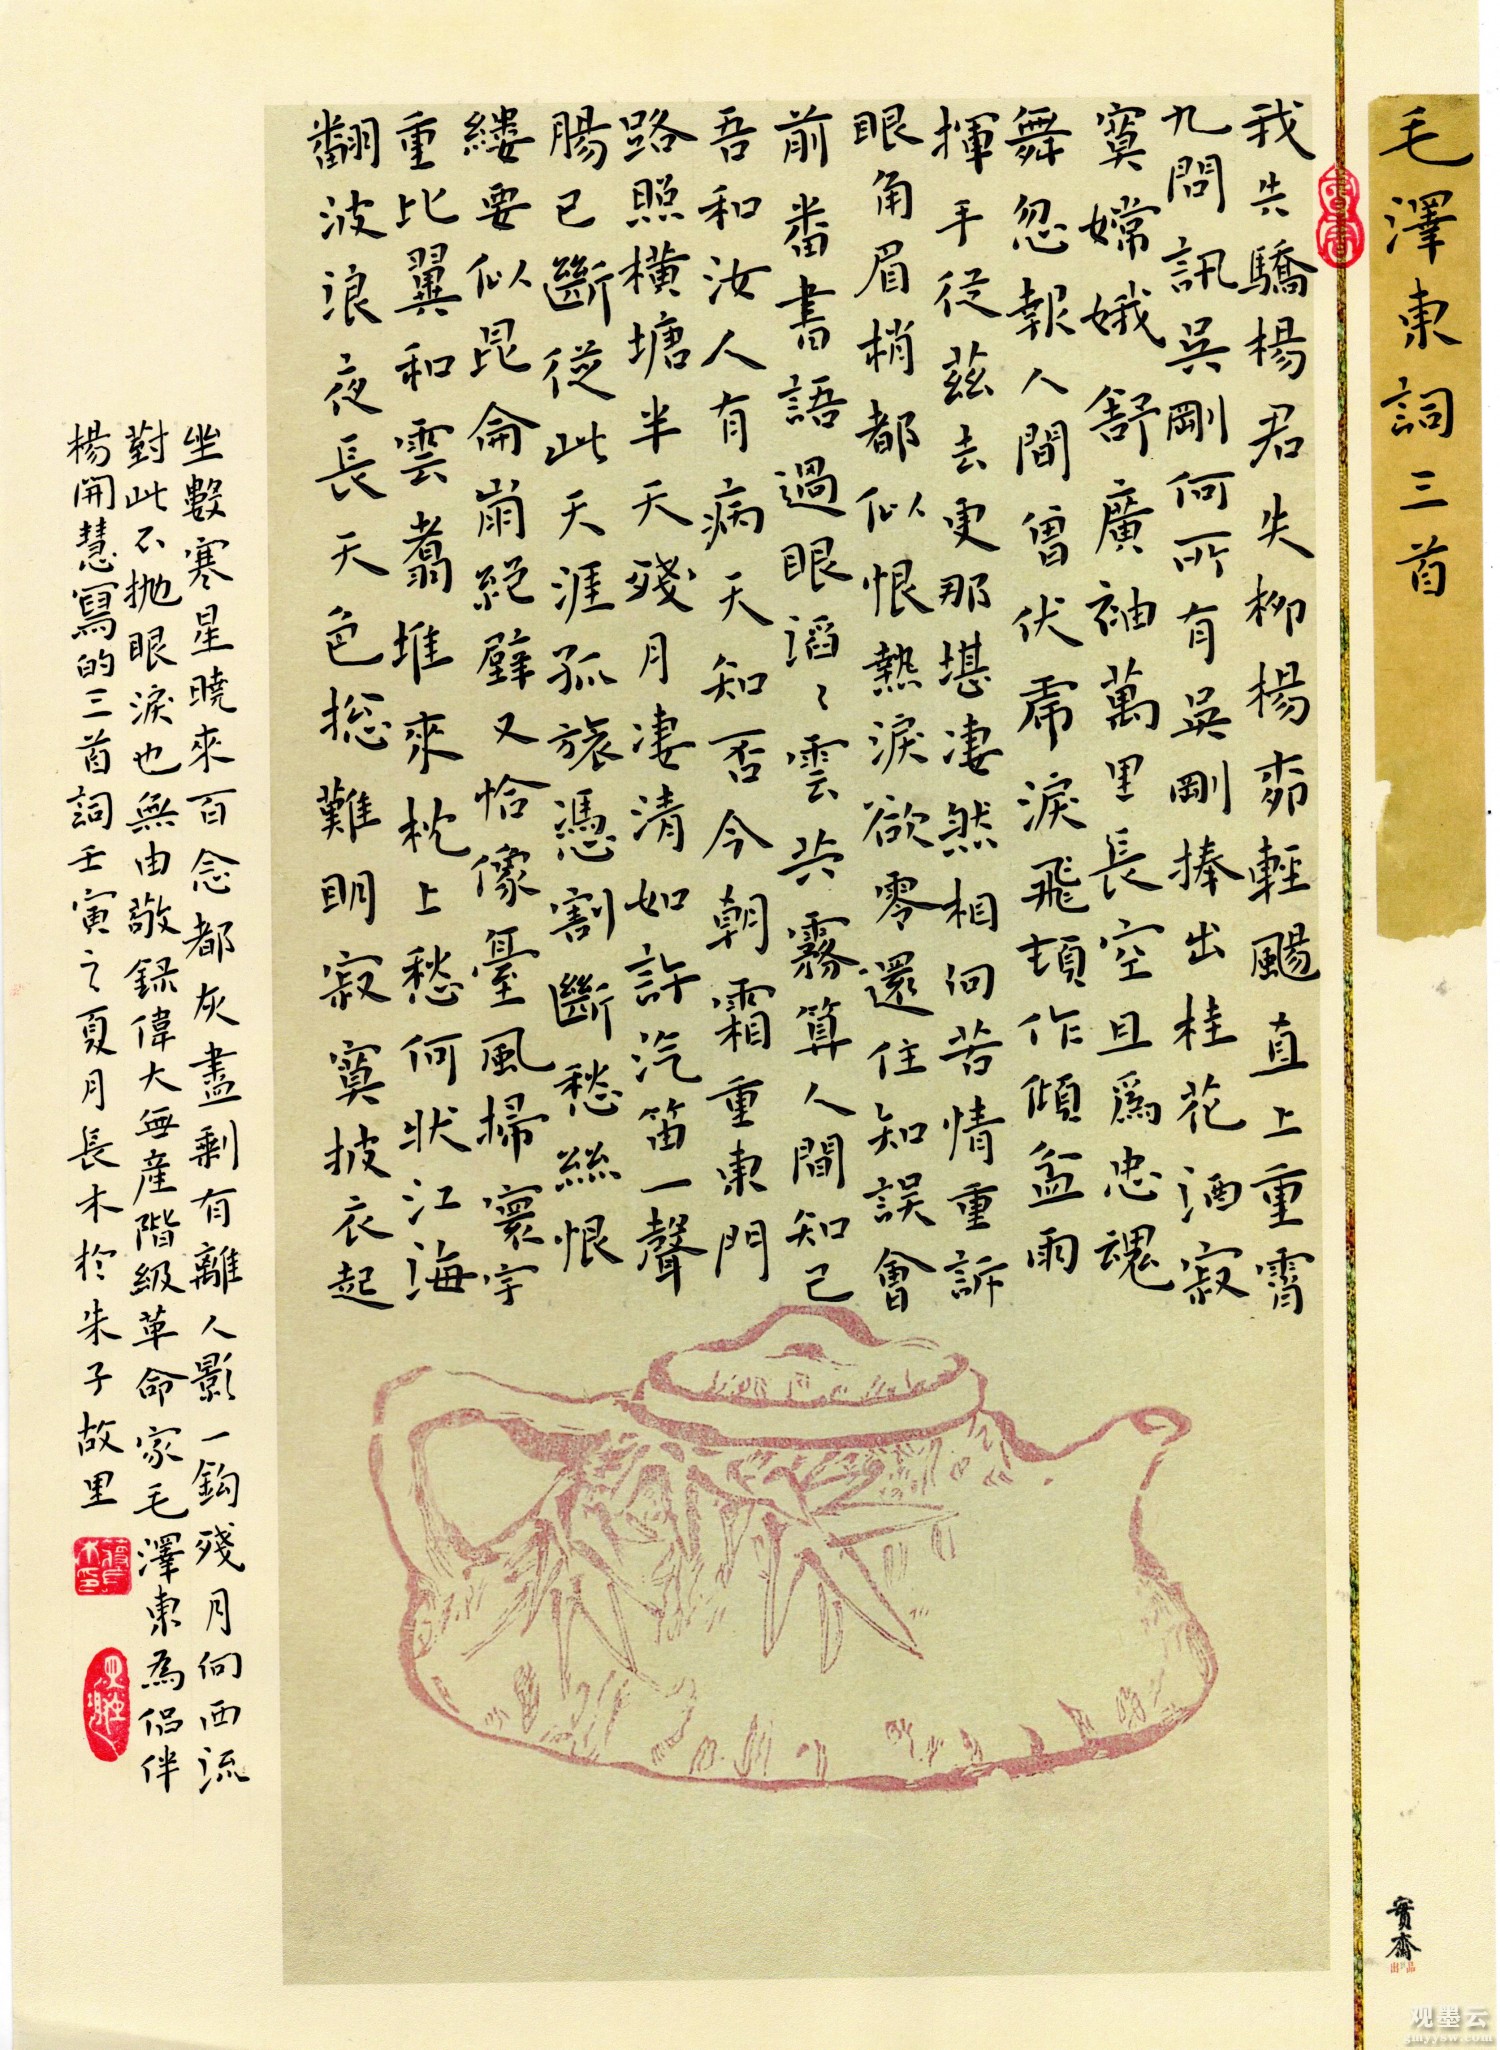 毛澤東詞三首
我失驕楊君失柳楊柳輕颺直上重霄
九問訊吳剛何所有吳剛捧出桂花酒寂
寞嫦娥舒廣袖萬里長空且為忠魂
舞忽報人間曾伏虎淚飛頓作傾盆雨
揮手從茲去更那堪淒然相向苦情重訴
眼角眉梢都似恨熱淚欲零還住知誤會
前番書語過眼滔〻雲共霧算人間知己
吾和汝人有病天知否今朝霜重東門
路照橫塘半天殘月凄清如許汽笛一聲
腸已斷從此天涯孤旅憑割斷愁絲恨
縷要似昆侖崩絕壁又恰像臺風掃寰宇
重比翼和雲翥堆來枕上愁何狀江海
翻波浪夜長天色總難明寂寞披衣起
坐數寒星曉來百念都灰盡剩有離人影一鈎殘月向西流
對此不拋眼淚也無由敬録偉大無産階級革命家毛澤東為侶伴
楊開慧寫的三首詞壬寅之夏月長木於朱子故里
寶齋
出品
观墨云
gmyysw.com